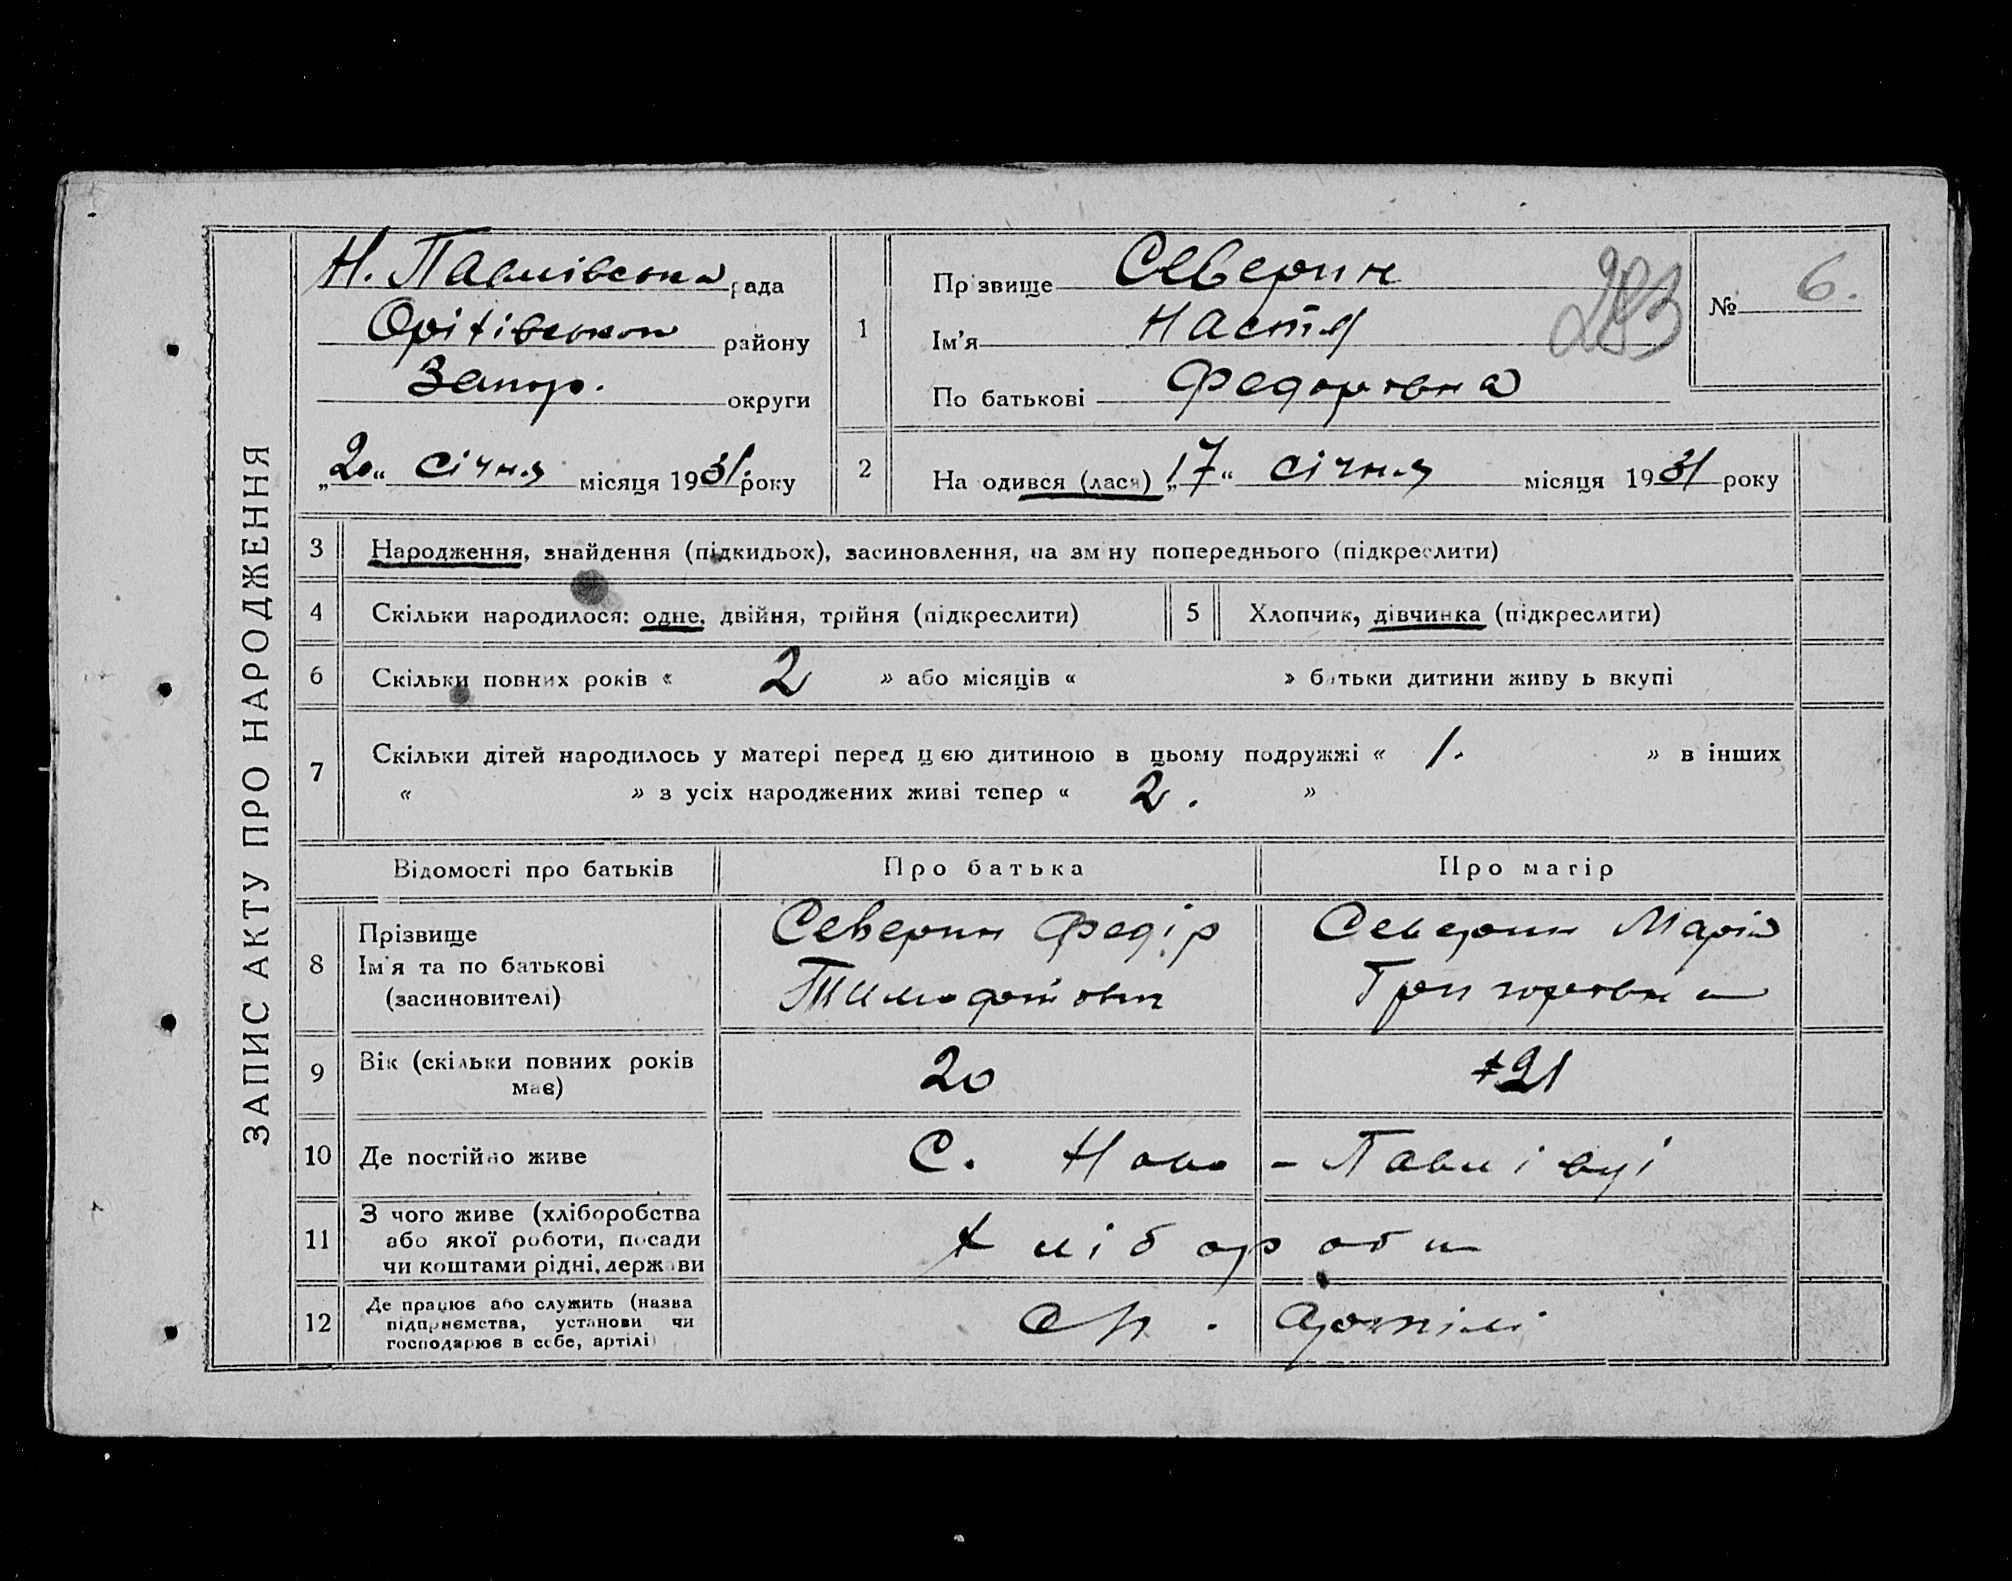 ЗАПИС АКТУ ПРО НАРОДЖЕННЯ
Н. Павлівська рада
Оріхівського району
Запор. округи
„20“ січня місяця 1931 року
1
Прізвище Северин
Ім'я Настя
По батькові Федоровна
283
№ 6.
2
Народився (лася) „17“ січня місяця 1931 року
3 Народження, знайдення (підкидьок), засиновлення, на зміну попереднього (підкреслити)
4 Скільки народилося: одне, двійня, трійня (підкреслити)
5 Хлопчик, дівчинка (підкреслити)
6 Скільки повних років « 2 » або місяців « » батьки дитини живуть вкупі
7 Скільки дітей народилось у матері перед цією дитиною в цьому подружжі « 1. » в інших
« » з усіх народжених живі тепер « 2. »
Відомості про батьків Про батька Про матір
8 Прізвище
Ім'я та по батькові
(засиновителі)
Северин Федір
Тимофійович
Северин Марія
Григоровна
9 Вік (скільки повних років
має)
20
21
10 Де постійно живе
С. Ново-Павлівці
11 З чого живе (хліборобства
або якої роботи, посади
чи коштами рідні, держави
Хлібороби
12 Де працює або служить (назва
підприємства, установи чи
господарює в себе, артілі)
артілі